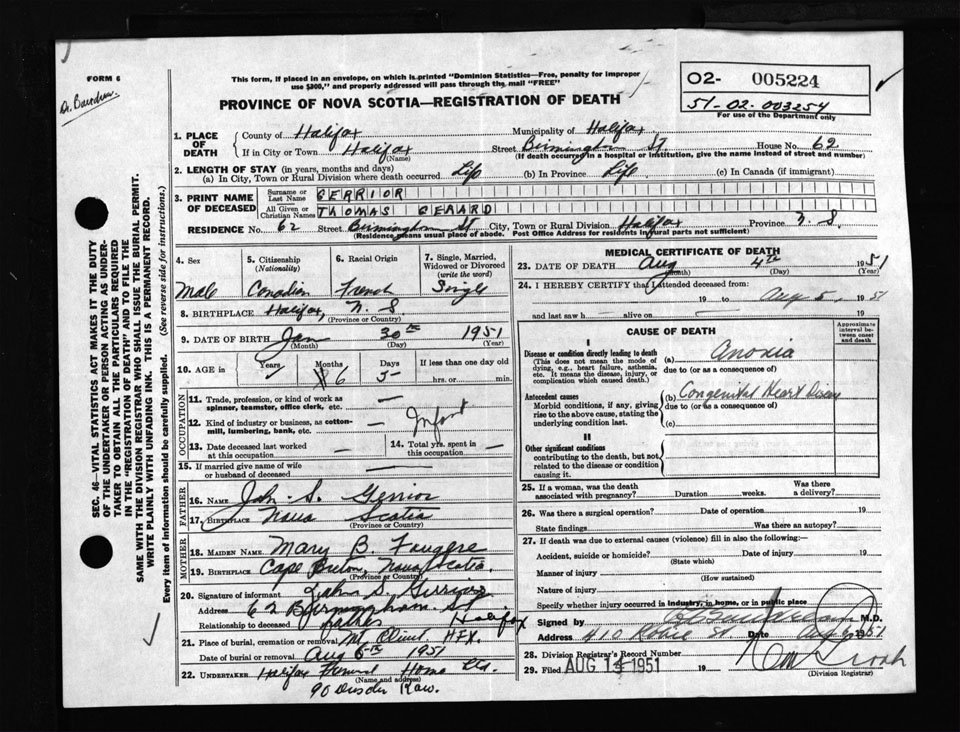 FORM 6
This form, if placed in an envelope, on which is printed "Dominion Statistics—Free, penalty for improper
use $300," and properly addressed will pass through the mail "FREE"
O2- 005224
51-02-003254
For use of the Department only
PROVINCE OF NOVA SCOTIA—REGISTRATION OF DEATH
SEC. 46—VITAL STATISTICS ACT MAKES IT THE DUTY
OF THE UNDERTAKER OR PERSON ACTING AS UNDER-
TAKER TO OBTAIN ALL THE PARTICULARS REQUIRED
IN THE "REGISTRATION OF DEATH" AND TO FILE THE
SAME WITH THE DIVISION REGISTRAR WHO SHALL ISSUE THE BURIAL PERMIT.
WRITE PLAINLY WITH UNFADING INK. THIS IS A PERMANENT RECORD.
Every item of information should be carefully supplied. (See reverse side for instructions.)
1. PLACE OF DEATH
County of Halifax Municipality of Halifax
If in City or Town Halifax Street Birmingham St House No. 62
(Name) (If death occurred in a hospital or institution, give the name instead of street and number)
2. LENGTH OF STAY (in years, months and days)
(a) In City, Town or Rural Division where death occurred Life (b) In Province Life (c) In Canada (if immigrant)
3. PRINT NAME OF DECEASED
Surname or Last Name GERRIOR
All Given or Christian Names THOMAS GERARD
RESIDENCE No. 62 Street Birmingham St City, Town or Rural Division Halifax Province N. S.
(Residence means usual place of abode. Post Office Address for residents in rural parts not sufficient)
4. Sex
Male
5. Citizenship (Nationality)
Canadian
6. Racial Origin
French
7. Single, Married, Widowed or Divorced (write the word)
Single
8. BIRTHPLACE Halifax, N. S
(Province or Country)
9. DATE OF BIRTH Jan 30th 1951
(Month) (Day) (Year)
10. AGE in Years Months 6 Days 5 If less than one day old
hrs. or min.
OCCUPATION
11. Trade, profession, or kind of work as
spinner, teamster, office clerk, etc. —
12. Kind of industry or business, as cotton-
mill, lumbering, bank, etc. — Infant
13. Date deceased last worked
at this occupation —
14. Total yrs. spent in
this occupation —
15. If married give name of wife
or husband of deceased —
FATHER
16. NAME John S. Gerrior
17. BIRTHPLACE Nova Scotia
(Province or Country)
MOTHER
18. MAIDEN NAME Mary B. Fougere
19. BIRTHPLACE Cape Breton, Nova Scotia.
(Province or Country)
20. Signature of informant John S. Gerrior
Address 62 Birmingham St Halifax
Relationship to deceased father
21. Place of burial, cremation or removal Mt Olivet HFX.
Date of burial or removal Aug 6th 1951
22. UNDERTAKER Halifax Funeral Home Ltd.
(Name and address)
90 Row.
MEDICAL CERTIFICATE OF DEATH
23. DATE OF DEATH Aug 4th 1951
(Month) (Day) (Year)
24. I HEREBY CERTIFY that I attended deceased from:
19 to Aug 5, 1951
and last saw h — alive on — 19
CAUSE OF DEATH
Approximate interval between onset and death
I
Disease or condition directly leading to death
(This does not mean the mode of dying, e.g., heart failure, asthenia, etc. It means the disease, injury, or complication which caused death.)
(a) Anoxia
due to (or as a consequence of)
Antecedent causes
Morbid conditions, if any, giving rise to the above cause, stating the underlying condition last.
(b) Congenital Heart Disease
due to (or as a consequence of)
(c)
II
Other significant conditions
contributing to the death, but not related to the disease or condition causing it.
25. If a woman, was the death
associated with pregnancy? Duration weeks. Was there a delivery?
26. Was there a surgical operation? Date of operation 19
State findings Was there an autopsy?
27. If death was due to external causes (violence) fill in also the following:—
Accident, suicide or homicide? Date of injury 19
(State which)
Manner of injury
(How sustained)
Nature of injury
Specify whether injury occurred in industry, in home, or in public place
Signed by M.D.
Address 410 Robie St. Date Aug 1951
28. Division Registrar's Record Number
29. Filed AUG 14 1951 19
(Division Registrar)